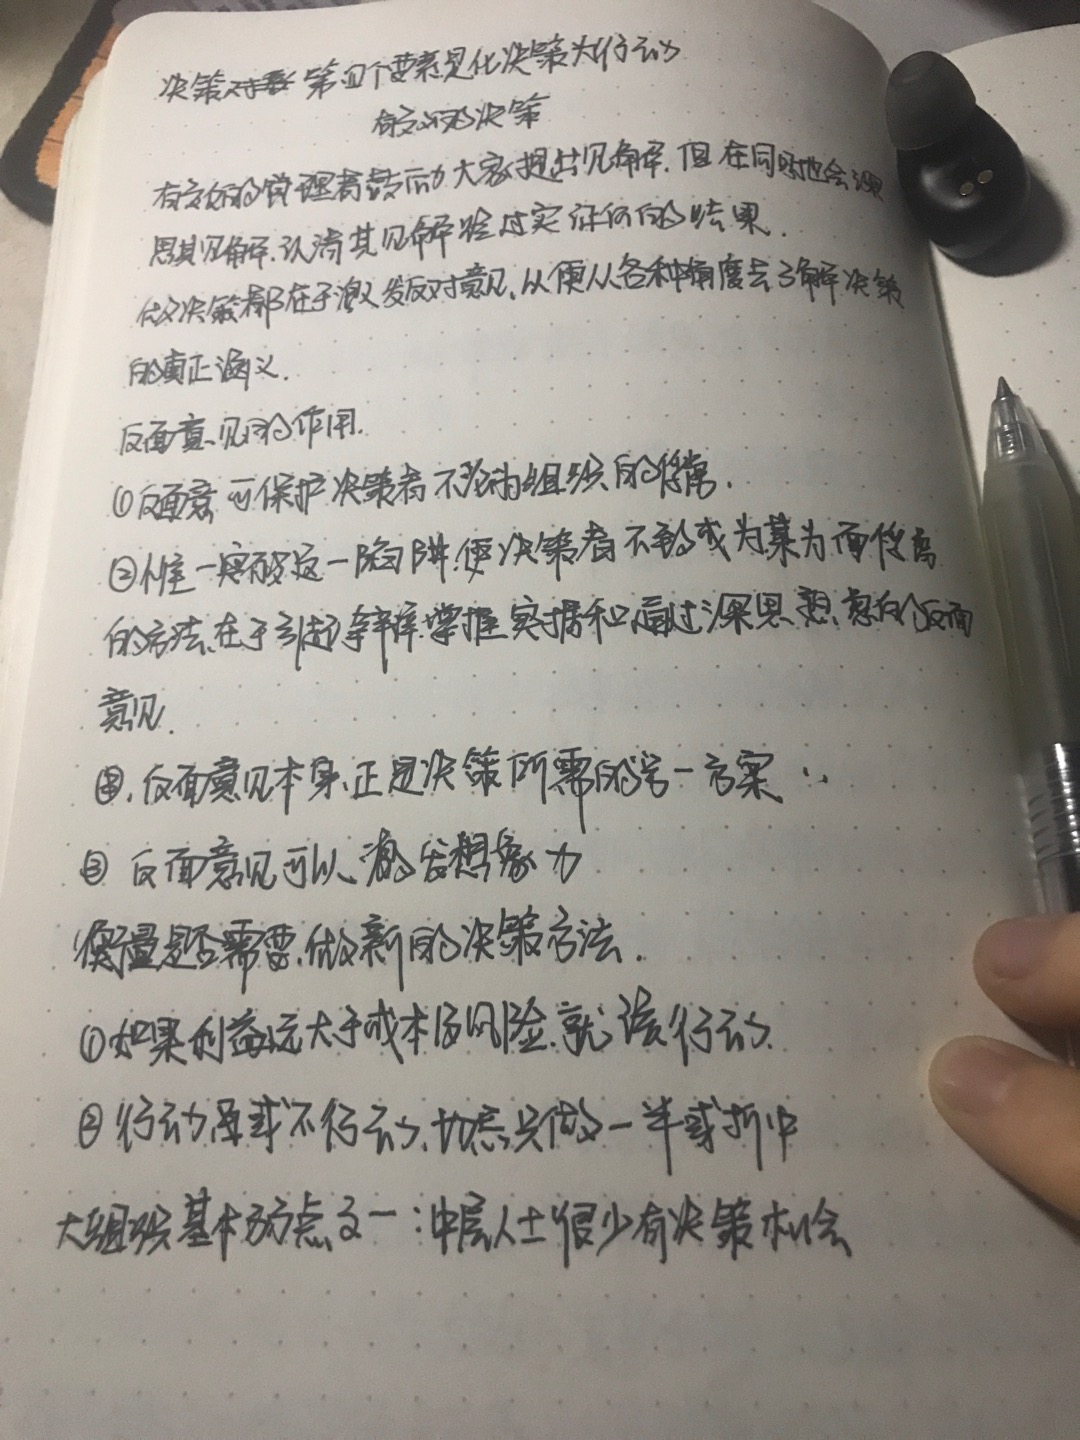 决策 第四个要素是化决策为行动
有效的决策
有效的管理者鼓励大家提出见解,但在同时也会深
思其见解,认清其见解经过实证的结果.
做决策都在于激发反对意见,以便从各种角度去了解决策
的真正涵义.
反面意见的作用.
①反面意可保护决策者不沦为组织的俘虏.
②惟一突破这一陷阱,使决策者不致成为某方面俘虏
的方法,在于引起争辩,掌握实据和通过深思熟虑的反面
意见.
反面意见本身,正是决策所需的另一方案
③ 反面意见可以激发想象力
衡量是否需要做新的决策方法.
①如果利益远大于成本及风险,就该行动.
②行动或不行动,切忌只做一半或折中
大组织基本弱点之一:中层人士很少有决策机会